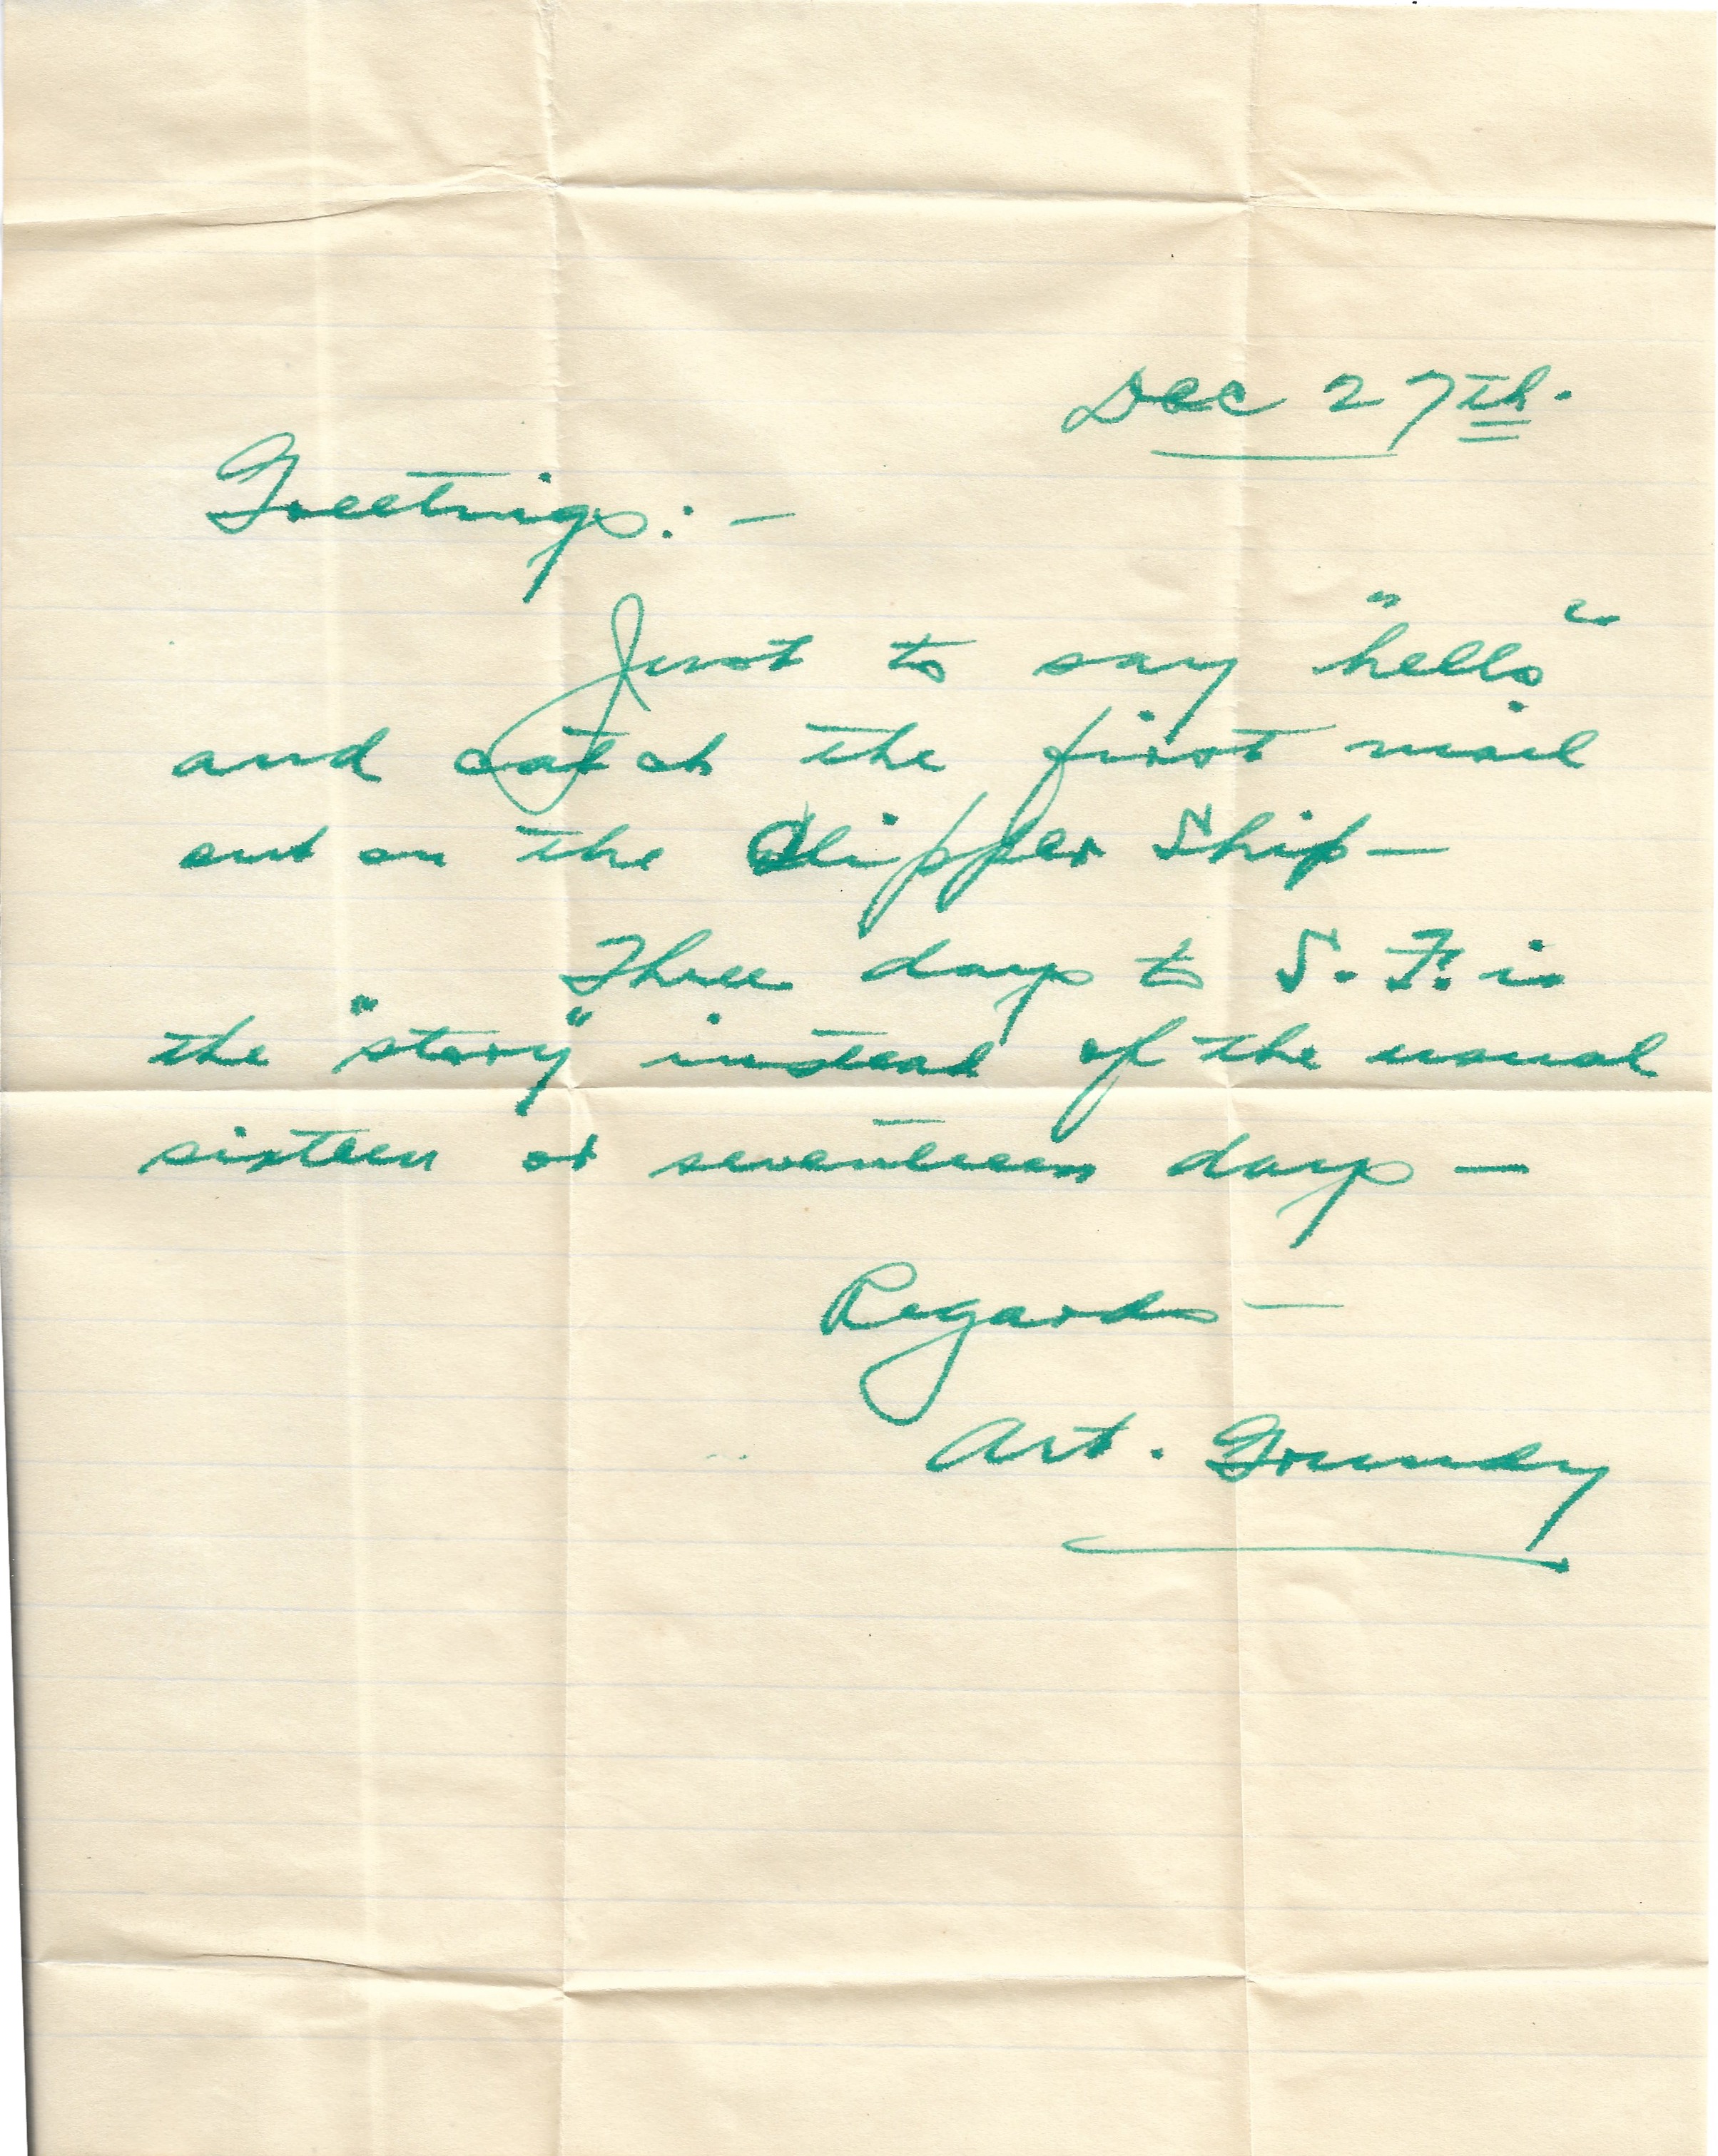 Dec 27th.
Greetings:—
Just to say "hello"
and catch the first mail
out on the Clipper Ship—
Three days to S.F. is
the "story" instead of the usual
sixteen or seventeen days —
Regards —
Art. Grundy